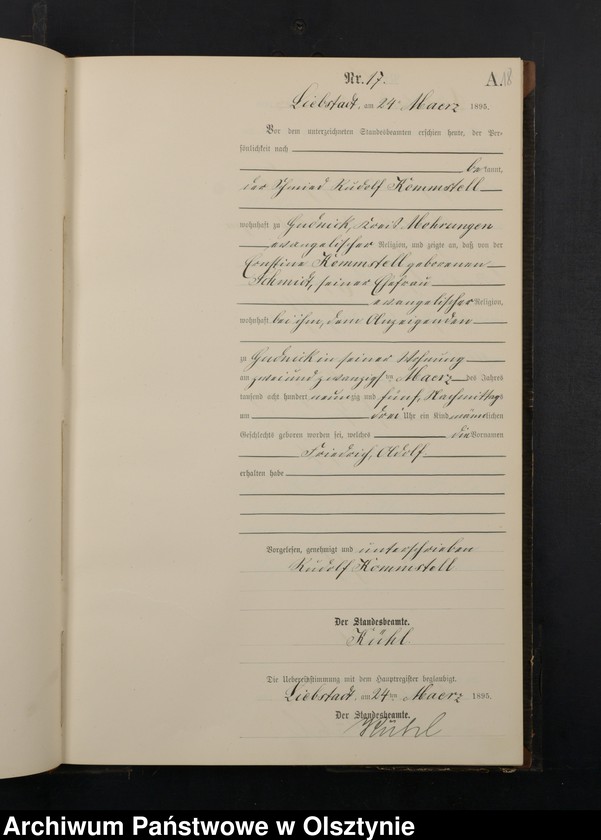 Nr. 17.
A. 18
Liebstadt, am 24ten Maerz 1895.
Vor dem unterzeichneten Standesbeamten erschien heute, der Per-
sönlichkeit nach
be kannt,
der Schmied Rudolf Kommstell
wohnhaft zu Gudnick, Kreis Mohrungen
evangelischer Religion, und zeigte an, daß von der
Ernstine Kommstell geborenen
Schmidt, seiner Ehefrau
evangelischer Religion,
wohnhaft bei ihm, dem Anzeigenden
zu Gudnick in seiner Wohnung
am zwei und zwanzigsten Maerz des Jahres
tausend acht hundert neunzig und fünf, Nachmittags
um drei Uhr ein Kind männlichen
Geschlechts geboren worden sei, welches die Vornamen
Friedrich, Adolf
erhalten habe
Vorgelesen, genehmigt und unterschrieben
Rudolf Kommstell
Der Standesbeamte.
Kühl
Die Uebereinstimmung mit dem Hauptregister beglaubigt.
Liebstadt, am 24ten Maerz 1895.
Der Standesbeamte.
Kühl
Archiwum Państwowe w Olsztynie